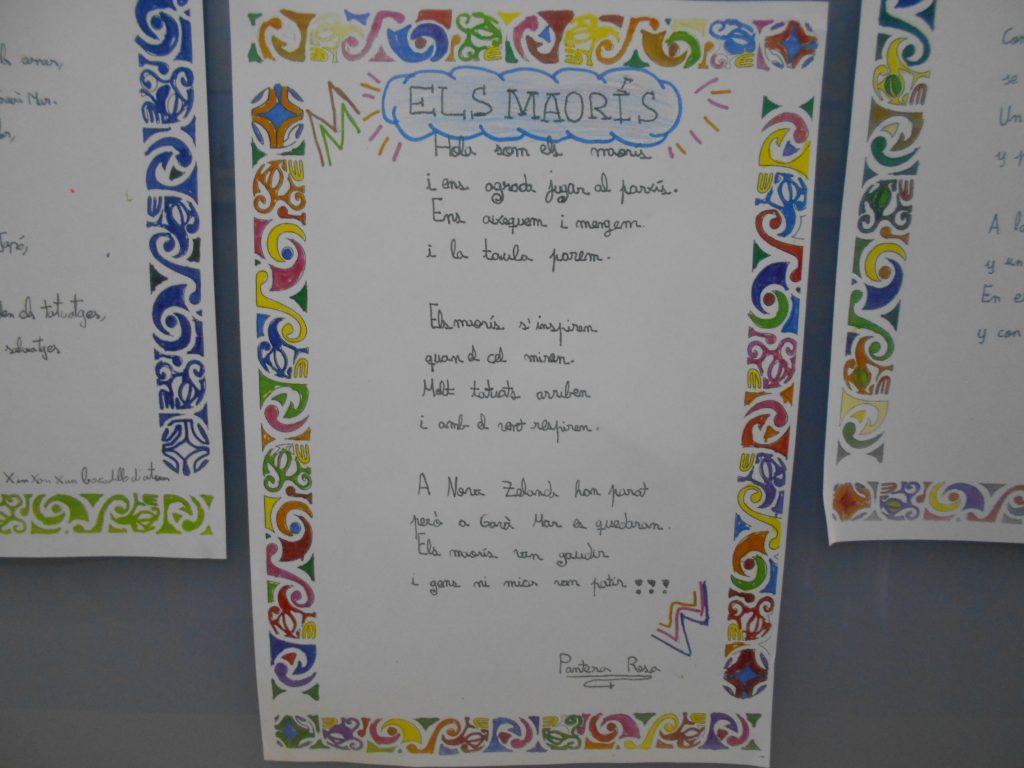 h amar,
Mar.
Japó,
tatuatges,
salvatges
Xim Xim Xim
ELS MAORÍS
Hola som els maorís
i ens agrada jugar al parxís.
Ens aixequem i mengem
i la taula parem.
Els maorís s'inspiren
quan el cel miren.
Molt tatuats arriben
i amb el vent respiren.
A Nova Zelanda han parat
però a Gavà Mar es quedaran.
Els maorís van gaudir
i gens ni mica van patir !!!
Pantera Rosa
Con
se
Un
y p
A la
y un
En el
y con